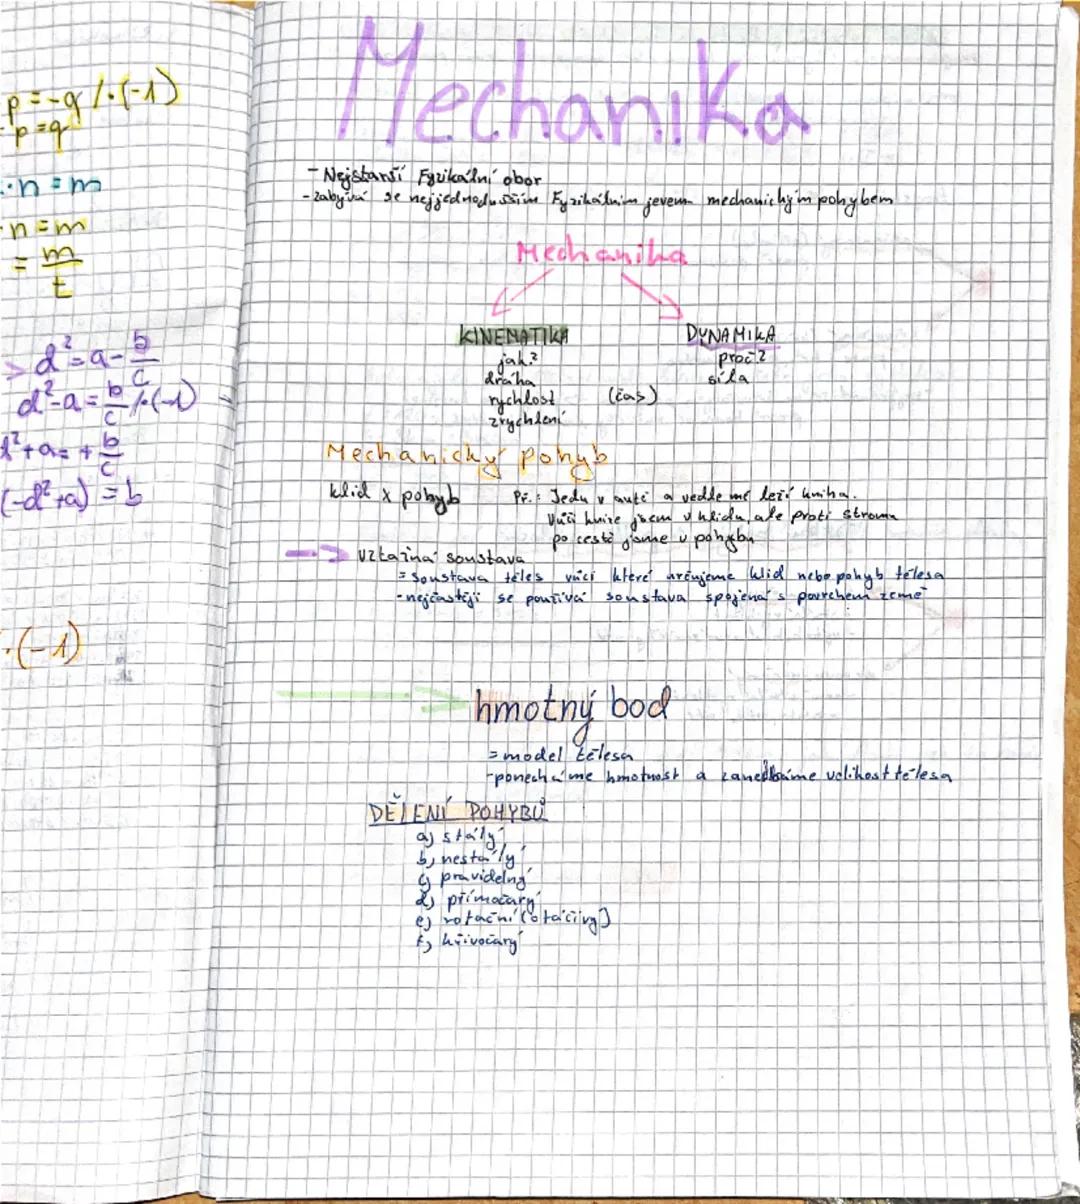 p = -q /·(-1)
-p = q
·n = m
·n = m
= m/t
> d² = a - b/c
d² - a = b/c /·(-1)
d² + a = + b/c
(-d² + a) = b
·(-1)
Mechanika
- Nejstarší Fyzikální obor
- zabývá se nejjednodušším Fyzikálním jevem mechanickým pohybem
Mechanika
KINEMATIKA DYNAMIKA
jak? proč?
dráha síla
rychlost (čas)
zrychlení
Mechanický pohyb
klid x pohyb Př.: Jedu v autě a vedle mě leží kniha.
Vůči knize jsem v klidu, ale proti stromu
po cestě jsme v pohybu
vztažná soustava
= soustava těles vůči které určujeme klid nebo pohyb tělesa
- nejčastěji se používá soustava spojená s povrchem země
hmotný bod
= model tělesa
- ponecháme hmotnost a zanedbáme velikost tělesa
DĚLENÍ POHYBŮ
a) stálý
b) nestálý
c) pravidelný
d) přímočarý
e) rotační (otáčivý)
f) křivočarý